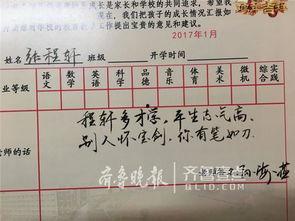 是家长和学校的共同追求。希望我
们把孩子的成长情况汇报如
工作提出宝贵的意见和建议。
2017年1月
姓名 张程轩 班级 开学时间
语文 数学 英语 科学 品德 音乐 体育 美术 微机 综合实践
业等级
程轩多才学,平生志气高,
别人怀宝剑,你有笔如刀.
师的话
齐鲁晚报 齐鲁壹点